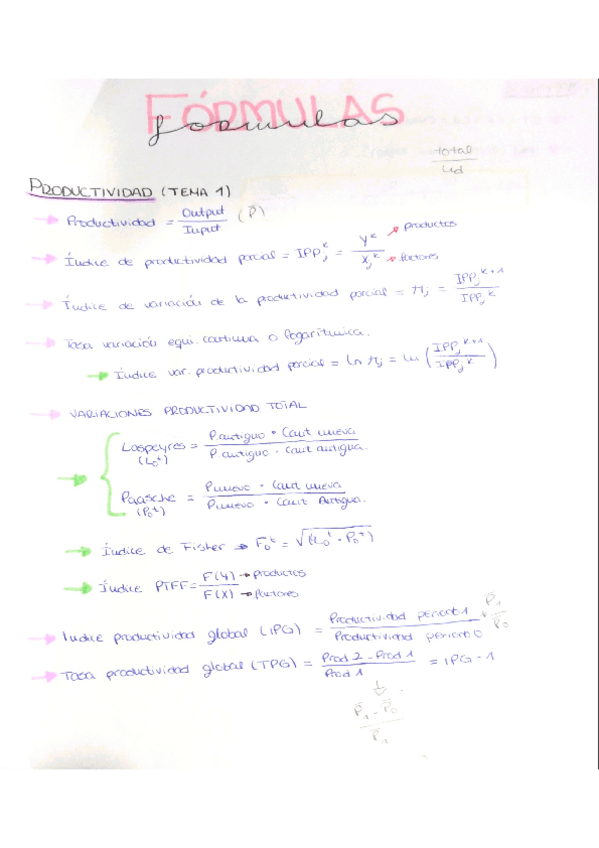 FÓRMULAS
formulas
total
ud
PRODUCTIVIDAD (TEMA 1)
Productividad = Output / Input (P̄)
Índice de productividad parcial = IPPⱼᵏ = Yᵏ / Xⱼᵏ → productos → factores
Índice de variación de la productividad parcial = πⱼ = IPPⱼᵏ⁺¹ / IPPⱼᵏ
Tasa variación equi. continua o logarítmica.
Índice var. productividad parcial = ln πⱼ = ln (IPPⱼᵏ⁺¹ / IPPⱼᵏ)
VARIACIONES PRODUCTIVIDAD TOTAL
Laspeyres = P. antiguo · Cant nueva / P. antiguo · Cant antigua.
(L₀ᵗ)
Paasche = P. nuevo · Cant nueva / P. nuevo · Cant Antigua.
(P₀ᵗ)
Índice de Fisher → F₀ᵗ = √(L₀ᵗ · P₀ᵗ)
Índice PTFF = F(Y) → Productos / F(X) → factores
Indice productividad global (IPG) = Productividad periodo 1 / Productividad periodo 0 P̄₁ / P̄₀
Tasa productividad global (TPG) = Prod 2 - Prod 1 / Prod 1 = IPG - 1
P̄₁ - P̄₀
P̄₁